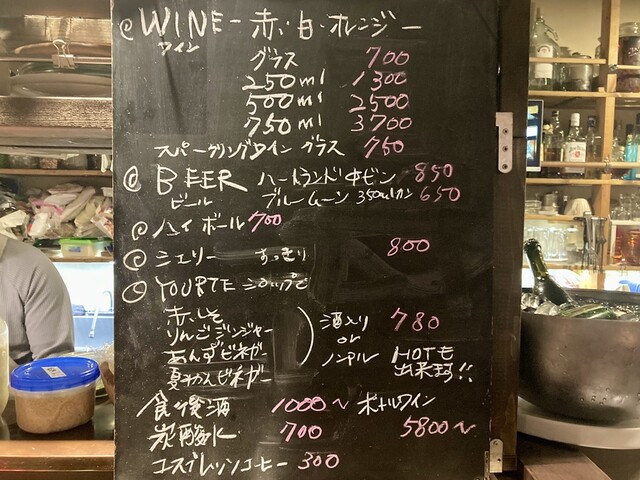 @ WINE - 赤・白・オレンジー
ワイン
グラス 700
250ml 1300
500ml 2500
750ml 3700
スパークリングワイン グラス 750
@ BEER ハートランド中ビン 850
ビール ブルームーン 350mlカン 650
@ ハイボール 700
@ シェリー すっきり 800
@ YOURTE シロップで
赤しそ
りんごジンジャー
あんずビネガー
夏みかんビネガー
酒入り or ノンアル 780
HOTも出来ます!!
食後酒 1000~ ボトルワイン 5800~
炭酸水 700
エスプレッソコーヒー 300